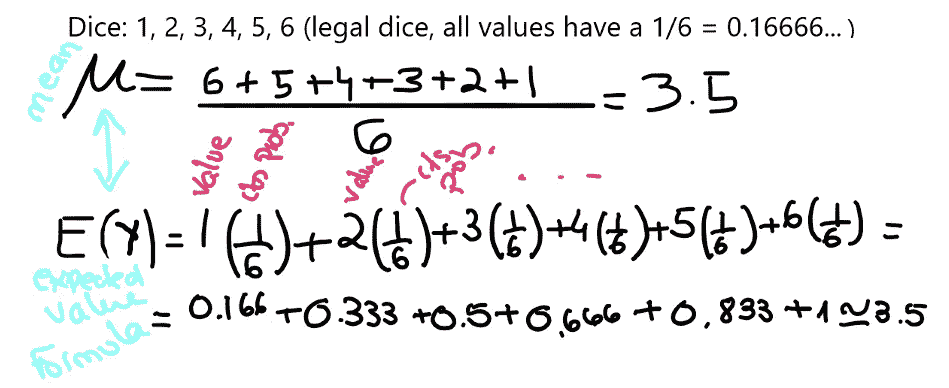 Dice: 1, 2, 3, 4, 5, 6 (legal dice, all values have a 1/6 = 0.16666... )
mean
μ = 6 + 5 + 4 + 3 + 2 + 1 / 6 = 3.5
value its prob. value its prob. . . .
E(x) = 1(1/6) + 2(1/6) + 3(1/6) + 4(1/6) + 5(1/6) + 6(1/6) =
expected value formula
= 0.166 + 0.333 + 0.5 + 0.666 + 0.833 + 1 ≃ 3.5